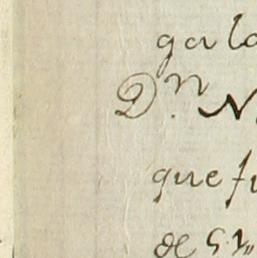 ga la
D.n N
que fu
de S. M